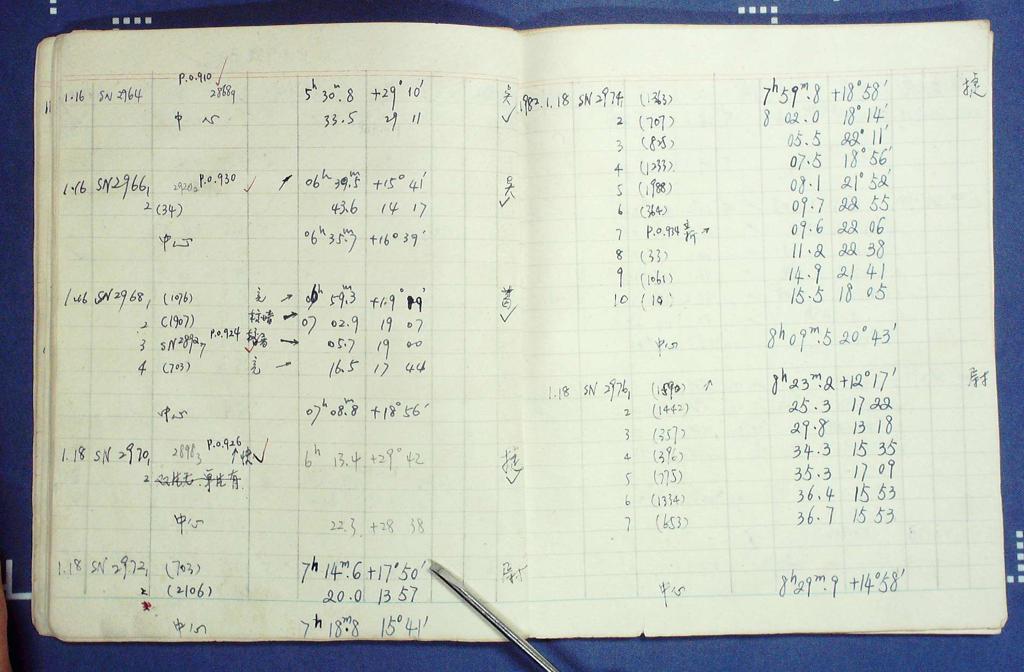 P.O.910
1.16 SN 2964 5ʰ 30ᵐ.8 +29° 10′ 吴
中心 33.5 29 11
1.16 SN 2966₁ P.O.930 06ʰ 39ᵐ.5 +15° 41′ 吴
2 (34) 43.6 14 17
中心 06ʰ 35ᵐ.7 +16° 39′
1.16 SN 2968₁ (1076) 亮 → 06ʰ 59ᵐ.3
2 (1907) → 07 02.9 19 07
3 SN2892₇ P.O.924 → 05.7 19 00
4 (703) 亮 → 16.5 17 44
中心 07ʰ 08ᵐ.8 +18° 56′
1.18 SN 2970₁ 2898₃ P.O.926 6ʰ 13.4 +29° 42 捷
2
中心 22.3 +28 38
1.18 SN 2972₁ (703) 7ʰ 14ᵐ.6 +17° 50′ 尉
2 (2106) 20.0 13 57
中心 7ʰ 18ᵐ.8 15° 41′
1982.1.18 SN 2974₁ (1263) 7ʰ 59ᵐ.8 +18° 58′ 捷
2 (707) 8 02.0 18° 14′
3 (825) 05.5 22° 11′
4 (1233) 07.5 18° 56′
5 (1988) 08.1 21° 52′
6 (364) 09.7 22 55
7 P.O.934 新 09.6 22 06
8 (33) 11.2 22 38
9 (1061) 14.9 21 41
10 (19) 15.5 18 05
中心 8ʰ 09ᵐ.5 20° 43′
1.18 SN 2976₁ ↑ 8ʰ 23ᵐ.2 +12° 17′ 尉
2 (1442) 25.3 17 22
3 (357) 29.8 13 18
4 (396) 34.3 15 35
5 (775) 35.3 17 09
6 (1334) 36.4 15 53
7 (653) 36.7 15 53
中心 8ʰ 29ᵐ.9 +14° 58′